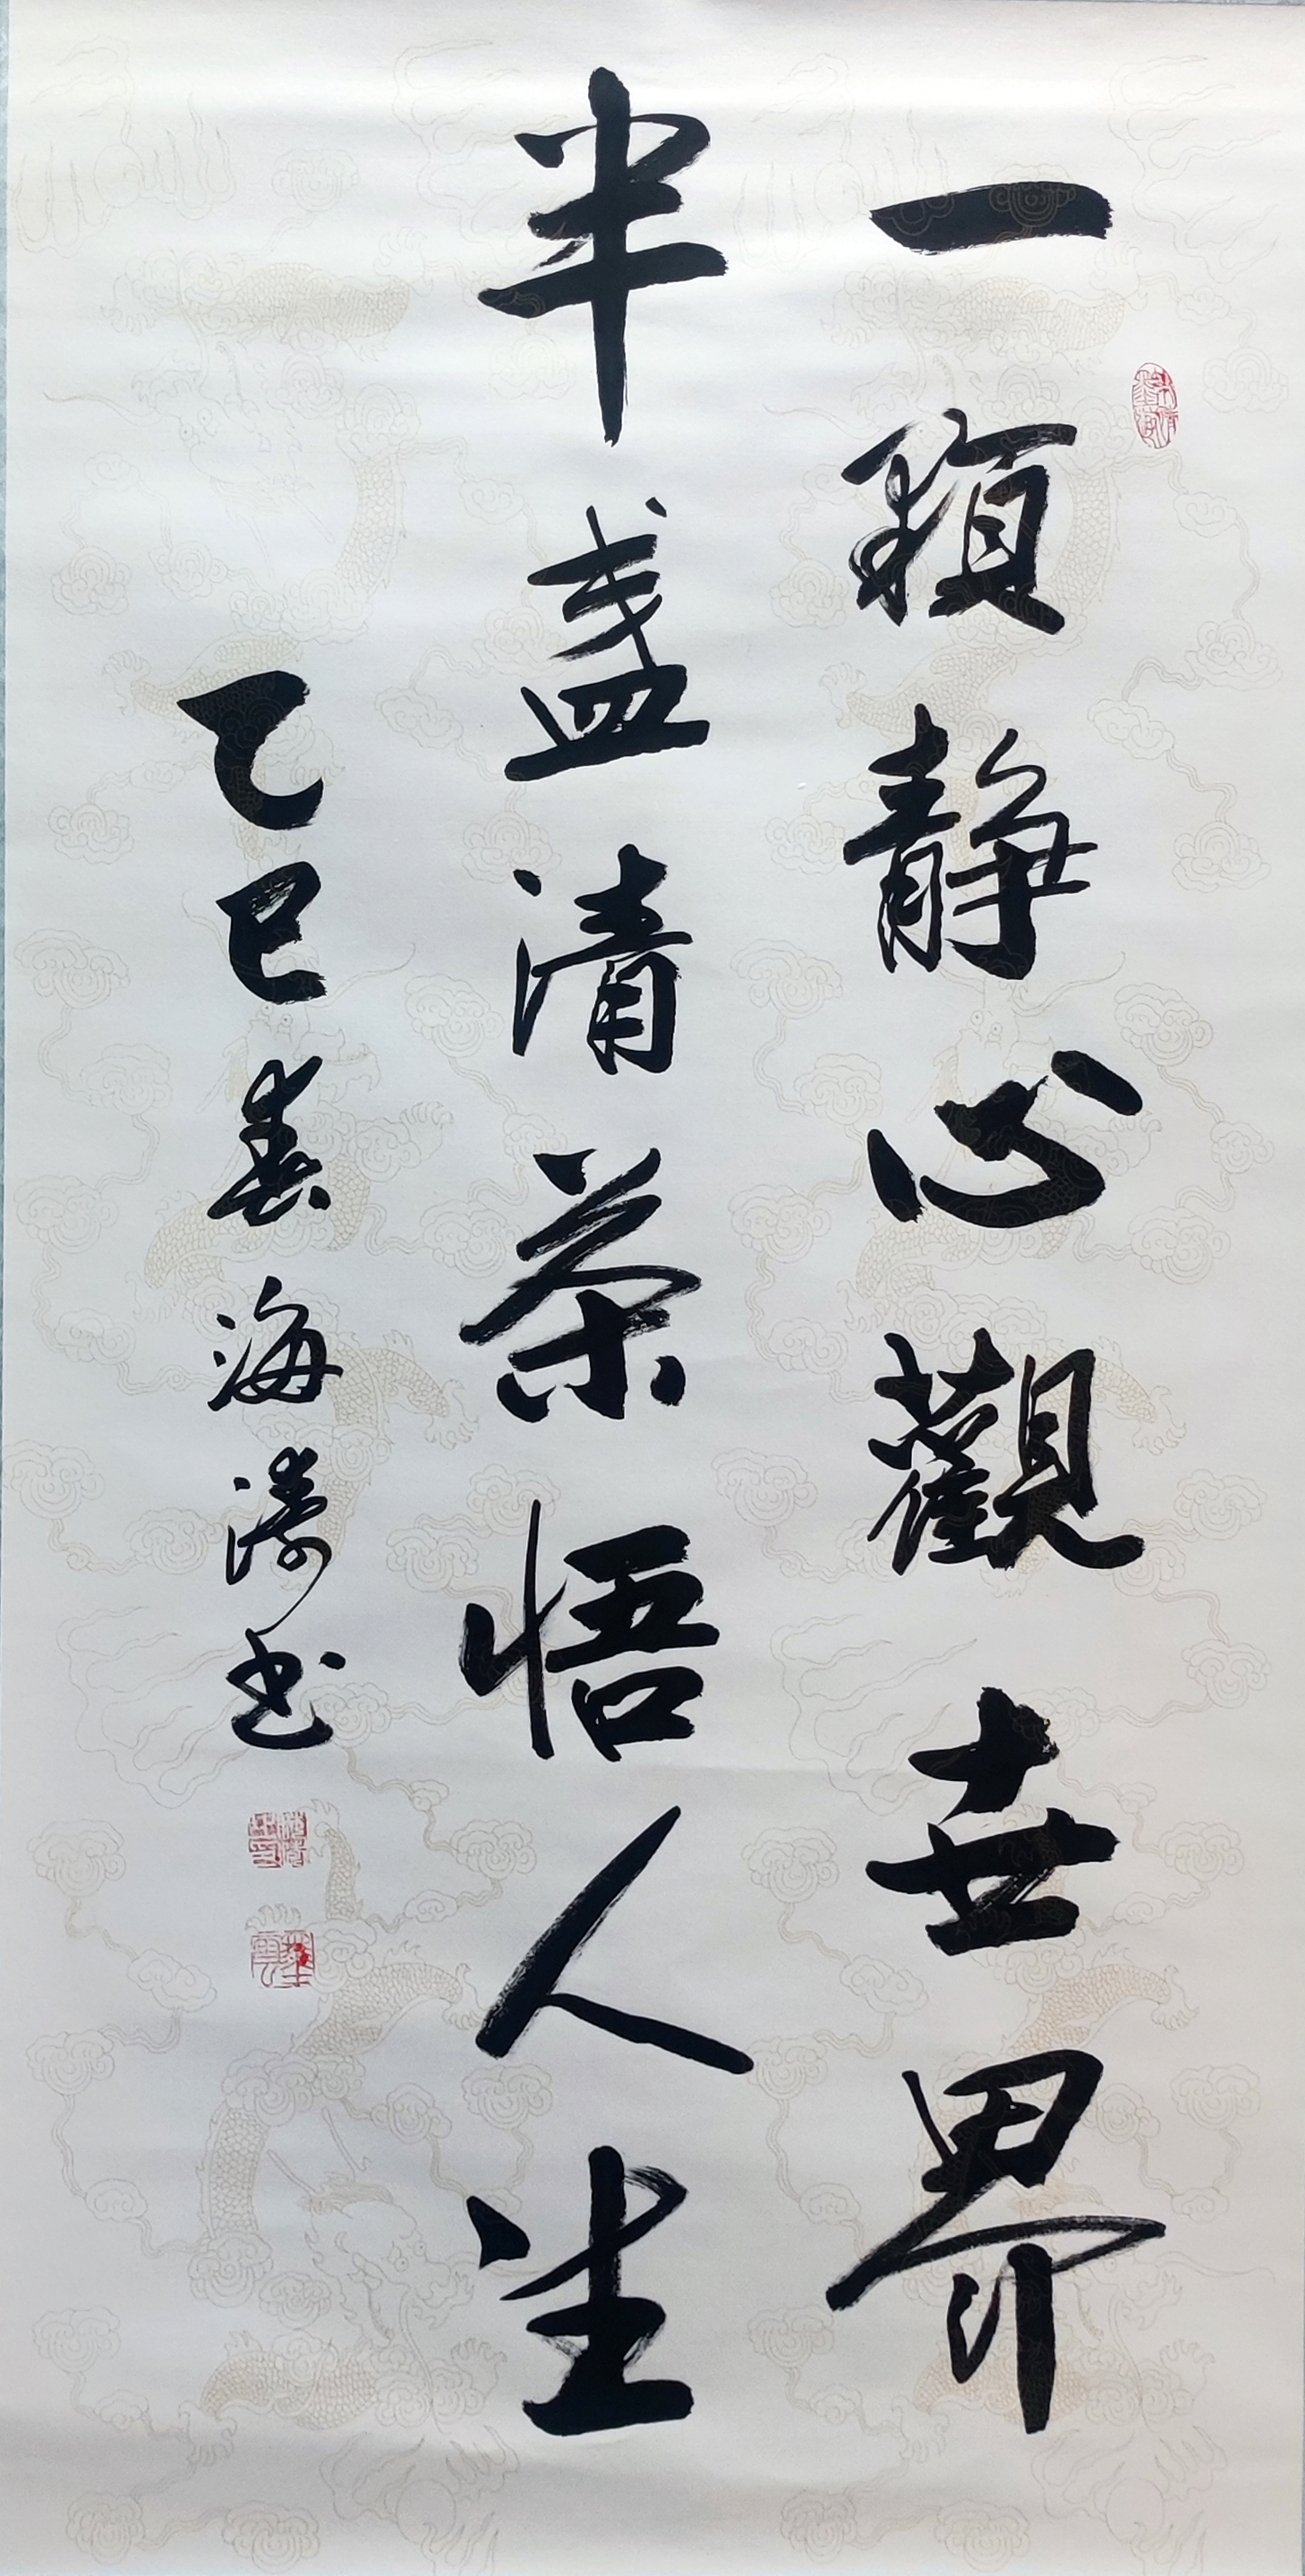 一顆靜心觀世界
半盏清茶悟人生
乙巳春海涛书